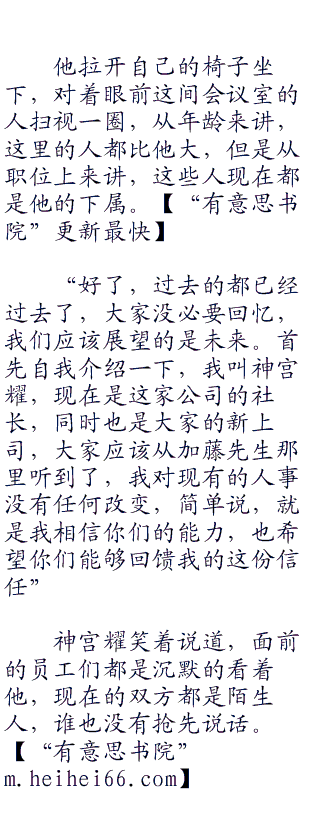 他拉开自己的椅子坐
下，对着眼前这间会议室的
人扫视一圈，从年龄来讲，
这里的人都比他大，但是从
职位上来讲，这些人现在都
是他的下属。【“有意思书
院”更新最快】
“好了，过去的都已经
过去了，大家没必要回忆，
我们应该展望的是未来。首
先自我介绍一下，我叫神宫
耀，现在是这家公司的社
长，同时也是大家的新上
司，大家应该从加藤先生那
里听到了，我对现有的人事
没有任何改变，简单说，就
是我相信你们的能力，也希
望你们能够回馈我的这份信
任”
神宫耀笑着说道，面前
的员工们都是沉默的看着
他，现在的双方都是陌生
人，谁也没有抢先说话。
【“有意思书院”
m.heihei66.com】